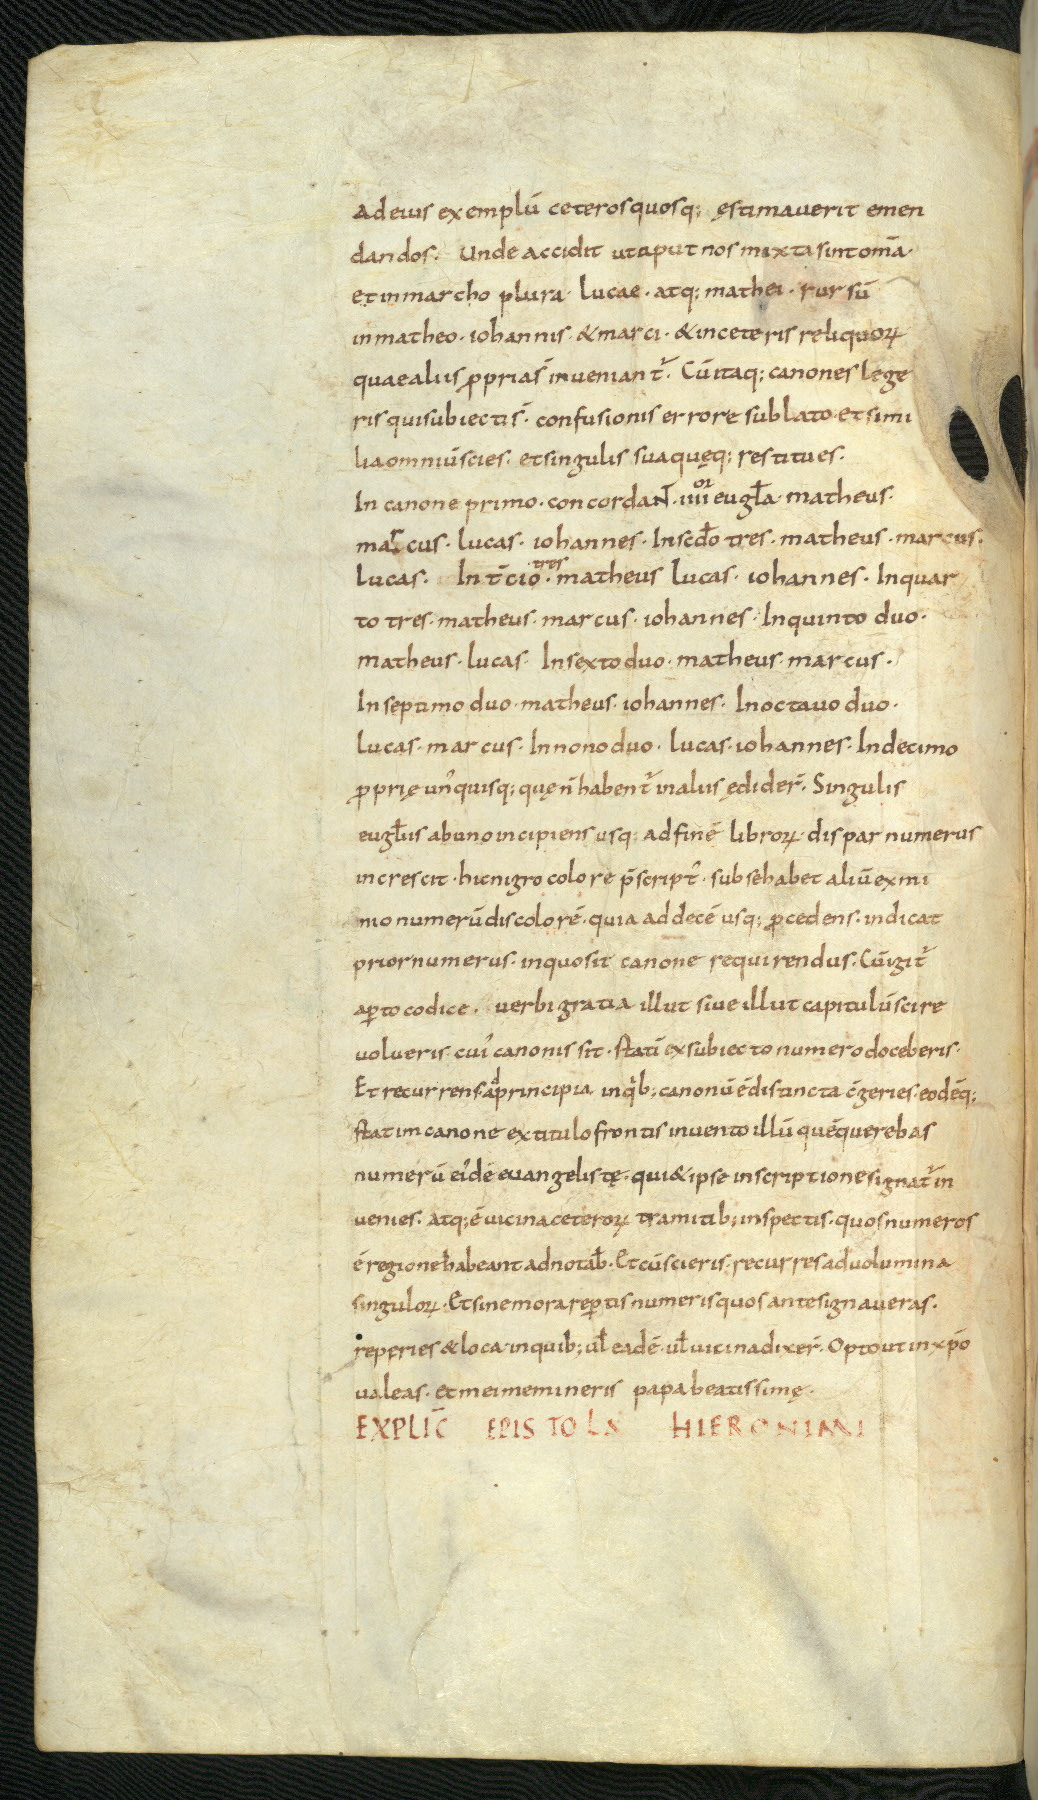 adeius exemplū ceterosquosq; ęstimaverit emen
dandos. Unde accidit utaput nos mixta sint omīa.
et in marcho plura. lucae. atq; mathei. rursū
in matheo. iohannis. & marci. & in ceteris reliquoꝝ
quae aliis ꝓprias inveniant᷑. Cū itaq; canones lege
ris qui subiecti s̄. confusionis errore sublato. et simi
lia omniū scies. et singulis sua quęq; restitues.
In canone primo. concordaN̄. iiiior eugl̄ia. matheus.
marcus. lucas. iohannes. In scd̄o tres. matheus. marcus.
lucas. In t̄cio tres. matheus lucas. iohannes. In quar
to tres. matheus. marcus. iohannes. In quinto duo.
matheus. lucas. In sexto duo. matheus. marcus.
In septimo duo. matheus. iohannes. In octavo duo.
lucas. marcus. In nono duo. lucas. iohannes. In decimo
ꝓprię un᾿quisq; quę n̄ habent᷑ in aliis ędider̄. Singulis
eugl̄iis ab uno incipiens usq; ad finē libroꝝ. dispar numerus
increscit. hic nigro colore p̄script᾿. sub se habet aliū ex mi
nio numerū discolorē. qui a ad decē usq; ꝓcedens. indicat
prior numerus. in quo sit canone requirendus. Cū igit᷑
aꝑto codice. verbi gratia illut sive illut capitulū scire
volueris cui᾿ canonis sit. statī ex subiecto numero doceberis.
Et recurrens ad principia in qib; canonū ē distincta c̄geries. eodēq;
statim canone ex titulo frontis invento illū quē querebas
numerū ei᾿dē evangelistę. qui & ipse inscriptione signat᷑ in
venies. atq; ē vicina ceteroꝝ tramitib; inspectis. quos numeros
ē regione habeant adnotab̄. Et cū scieris. recurres ad volumina
singuloꝝ. Et sine mora reꝑtis numeris quos ante signaveras.
reperies & loca in quib; vl̄ eadē. vl̄ vicina dixer̄. Opto ut in xp̄o
valeas. et mei memineris papa beatissimę.
EXPLIC̄ EPISTOLA HIERONIMI